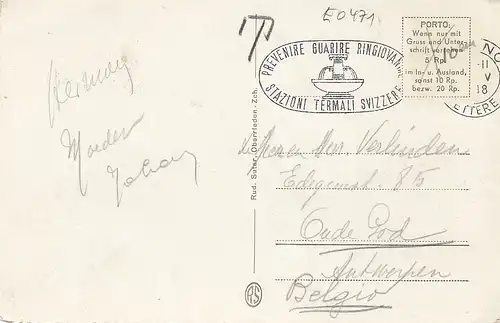 E0471
T
PREVENIRE GUARIRE RINGIOVANIRE
STAZIONI TERMALI SVIZZERE
PORTO:
Wenn nur mit
Gruss und Unter-
schrift versehen
5 Rp.
im In- u. Ausland,
sonst 10 Rp.
bezw. 20 Rp.
NO
-11
V
18
LETTERE
Moeder
Rud. Suter, Oberrieden-Zch.
RS
Heren Mevr Verlinden
Edegemst. 85
Oude God
Antwerpen
Belgio